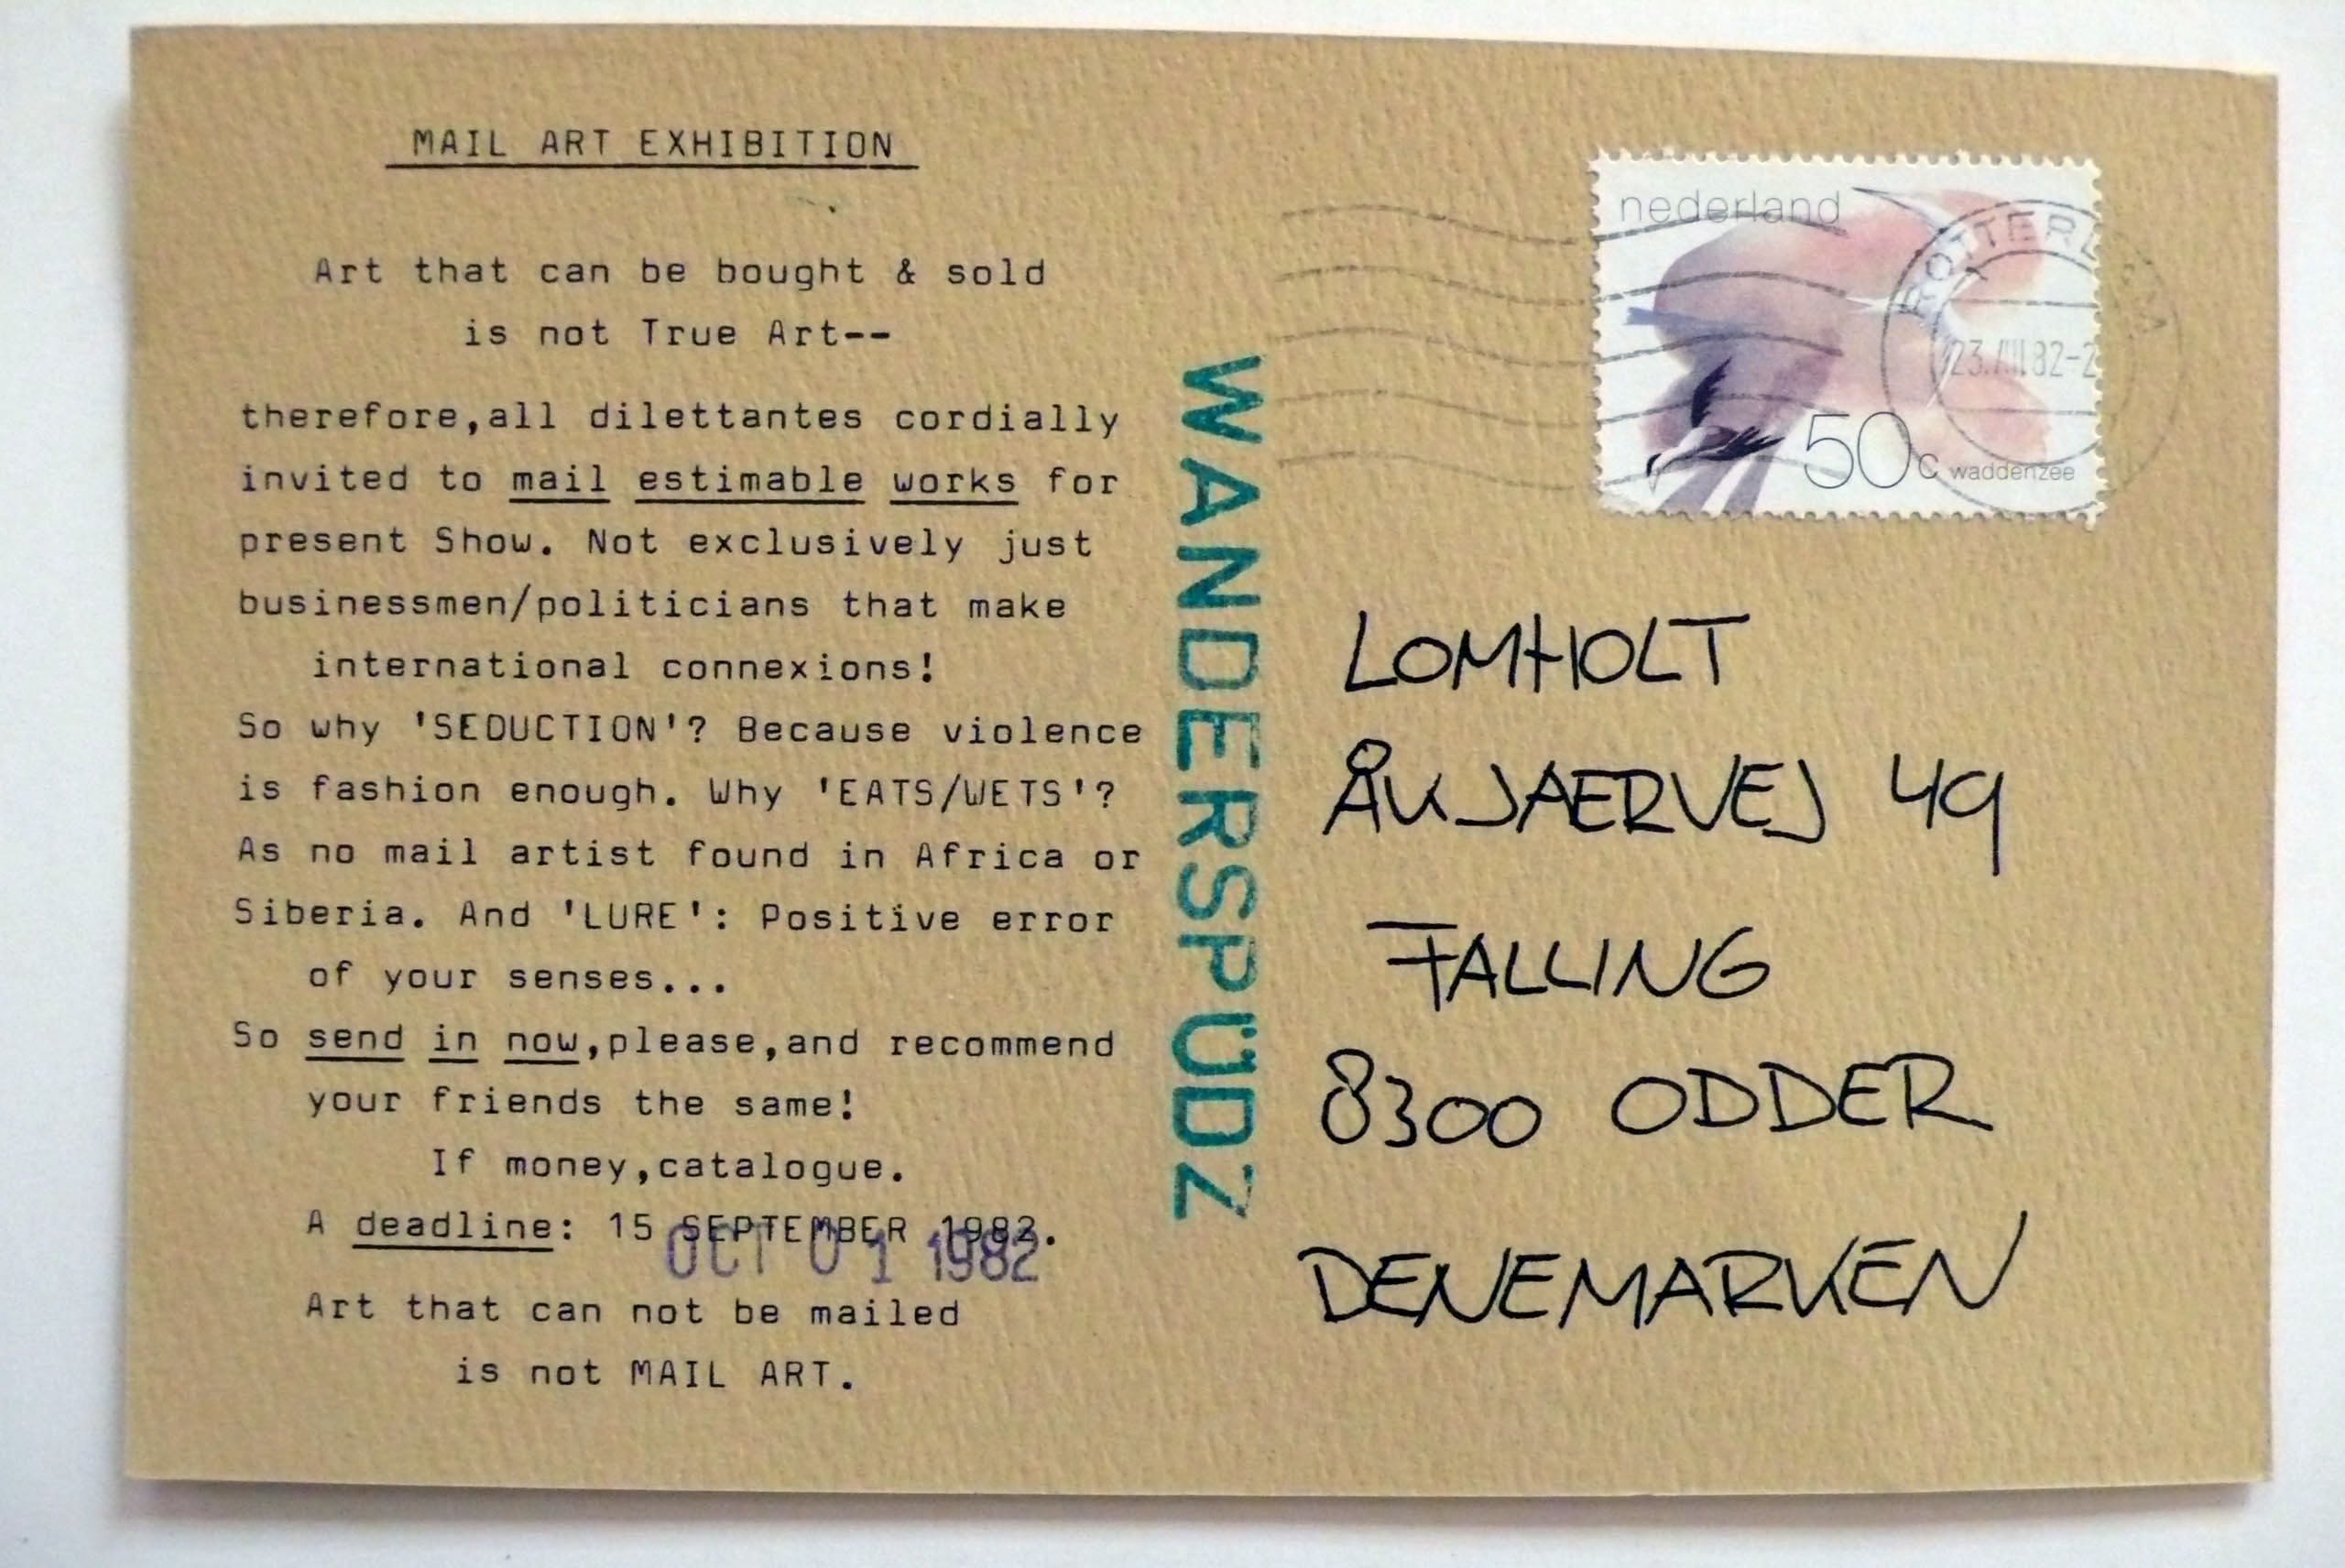 MAIL ART EXHIBITION
Art that can be bought & sold
is not True Art--
therefore,all dilettantes cordially
invited to mail estimable works for
present Show. Not exclusively just
businessmen/politicians that make
international connexions!
So why 'SEDUCTION'? Because violence
is fashion enough. Why 'EATS/WETS'?
As no mail artist found in Africa or
Siberia. And 'LURE': Positive error
of your senses...
So send in now,please,and recommend
your friends the same!
If money,catalogue.
A deadline: 15 SEPTEMBER 1982.
OCT 01 1982
Art that can not be mailed
is not MAIL ART.
WANDERSPÜDZ
nederland
50c waddenzee
ROTTERDAM
LOMHOLT
ÅKJAERVEJ 49
FALLING
8300 ODDER
DENEMARKEN